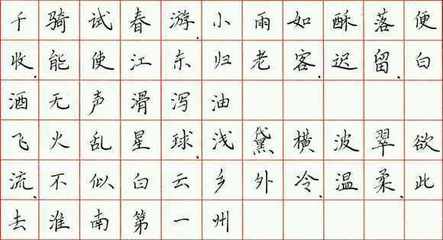 千骑试春游.小雨如酥落便
收.能使江东归老客.迟留.白
酒无声滑泻油
飞火乱星球.浅黛横波翠欲
流.不似白云乡外冷.温柔.此
去淮南第一州